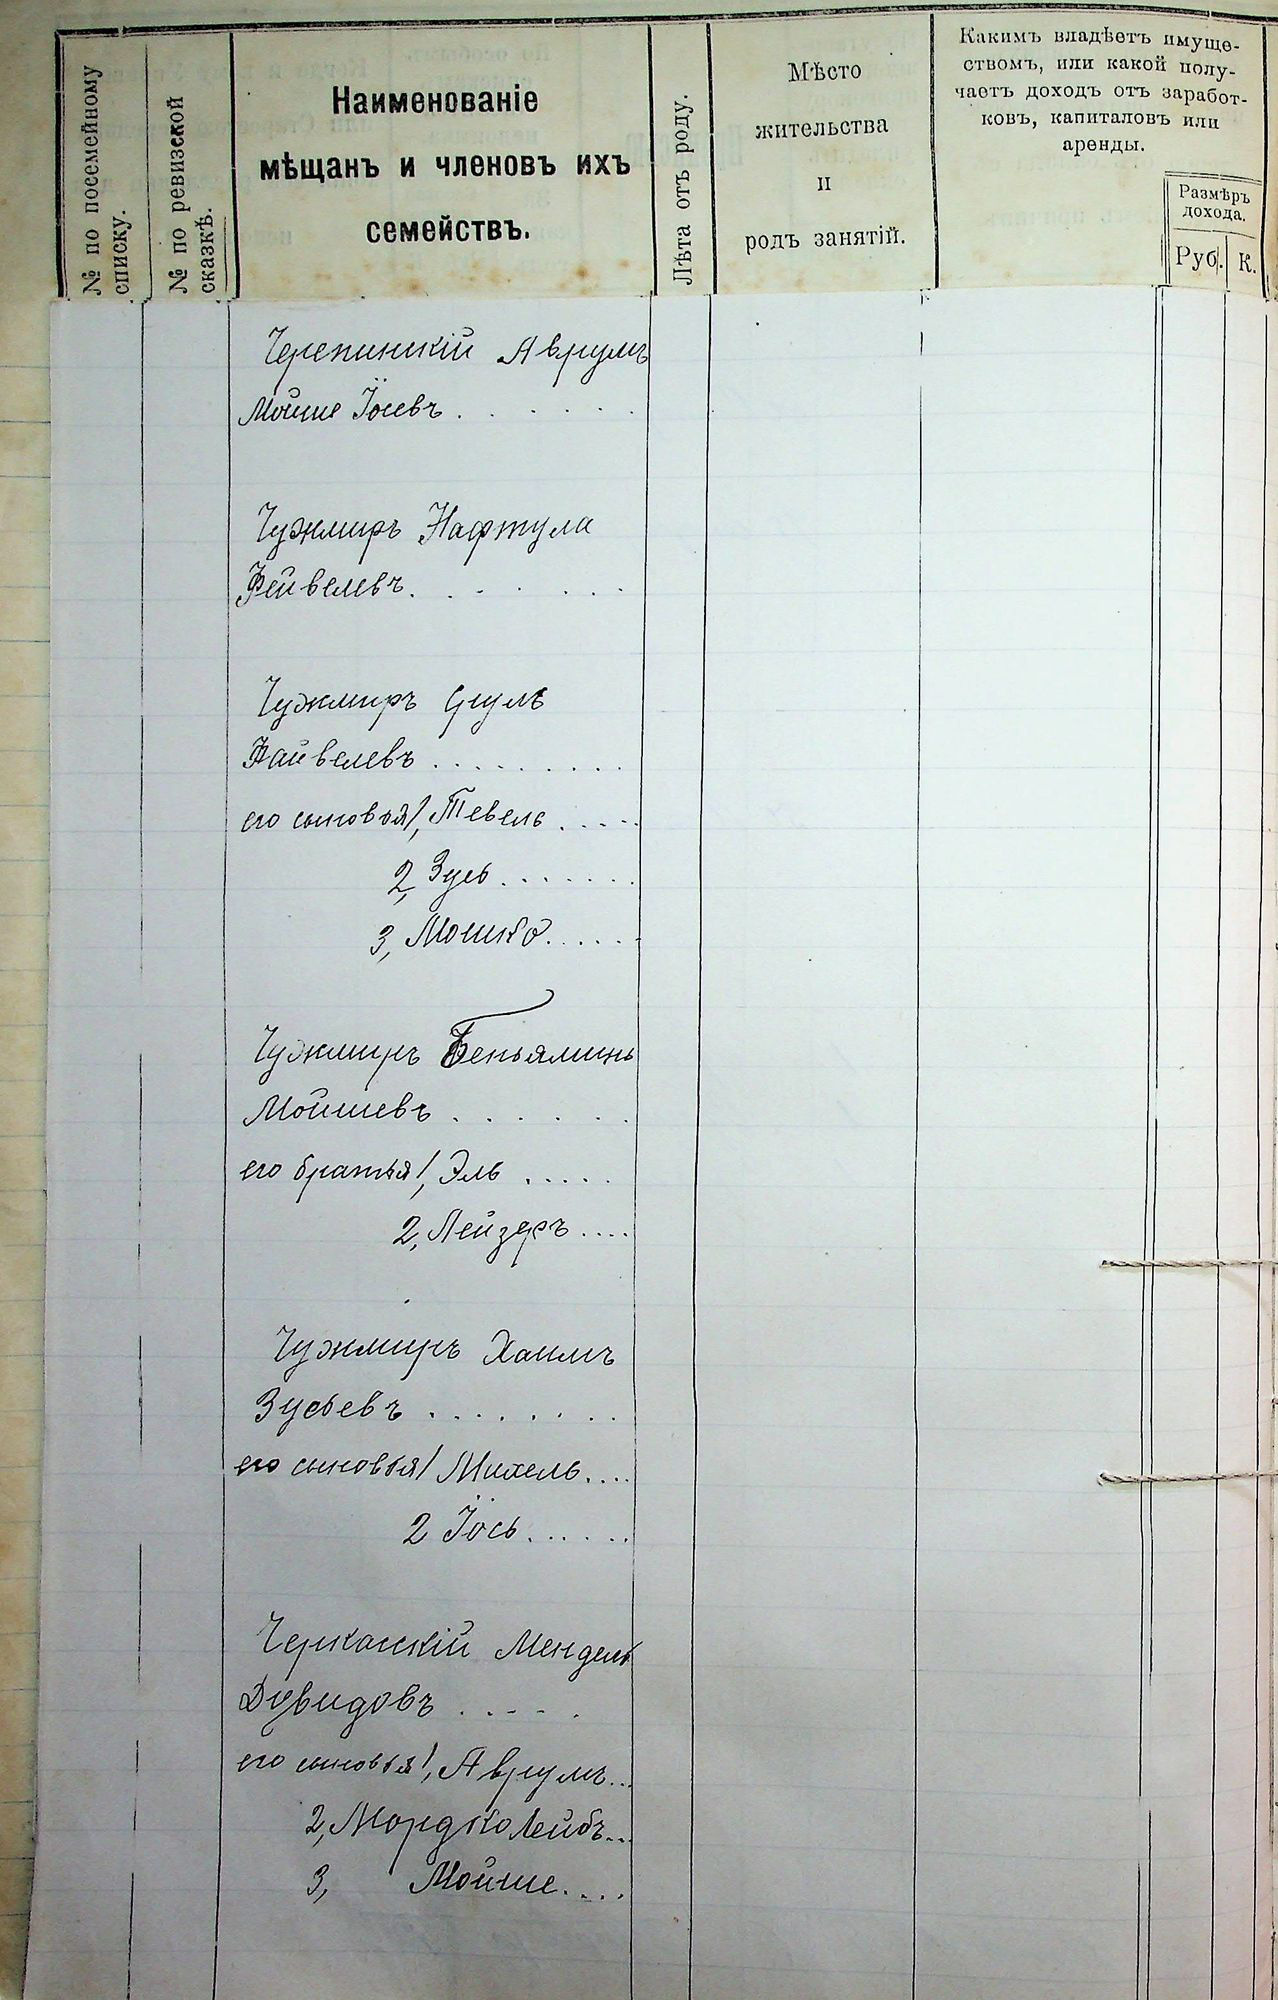 № по посемейному
списку.
№ по ревизской
сказкѣ.
Наименованіе
мѣщанъ и членовъ ихъ
семействъ.
Лѣта отъ роду.
Мѣсто
жительства
и
родъ занятій.
Какимъ владѣетъ имуще-
ствомъ, или какой полу-
чаетъ доходъ отъ заработ-
ковъ, капиталовъ или
аренды.
Размѣръ
дохода.
Руб. К.
Черепинскій Аврумъ
Мойше Іосевъ . . . . . .
Чужмиръ Нафтула
Фейвелевъ. . . . . . .
Чужмиръ Сруль
Файвелевъ . . . . . . . . .
его сыновья 1, Тевель . . . . .
2, Зусь . . . . . . .
3, Мошко . . . . . .
Чужмиръ Беньяминъ
Мойшевъ . . . . . .
его братья 1, Эль . . . . .
2, Лейзеръ . . . .
Чужмиръ Хаимъ
Зусьевъ . . . . . . . .
его сыновья 1 Михель. . . .
2 Іось . . . . . .
Черкаскій Мендель
Дувидовъ . . . . .
его сыновья 1, Аврумъ...
2, Мордко Лейбъ...
3, Мойше. . . .